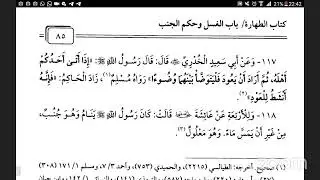 22:42
كتاب الطهارة/ باب الغسل وحكم الجنب
٨٥
١١٧- وَعَنْ أَبِي سَعِيدٍ الْخُدْرِيِّ قَالَ: قَالَ رَسُولُ اللَّهِ ﷺ: «إِذَا أَتَى أَحَدُكُمْ
أَهْلَهُ، ثُمَّ أَرَادَ أَنْ يَعُودَ فَلْيَتَوَضَّأْ بَيْنَهُمَا وُضُوءًا» رَوَاهُ مُسْلِمٌ(١)، زَادَ الْحَاكِمُ: «فَإِنَّهُ
أَنْشَطُ لِلْعَوْدِ»(٢).
١١٨- وَلِلْأَرْبَعَةِ عَنْ عَائِشَةَ قَالَتْ: كَانَ رَسُولُ اللَّهِ ﷺ يَنَامُ وَهُوَ جُنُبٌ،
مِنْ غَيْرِ أَنْ يَمَسَّ مَاءً. وَهُوَ مَعْلُولٌ(٣)
(١) صحيح، أخرجه: الطيالسي (٢٢١٥)، والحميدي (٧٥٣)، وأحمد ٣/ ٧، ومسلم ١/ ١٧١ (٣٠٨)